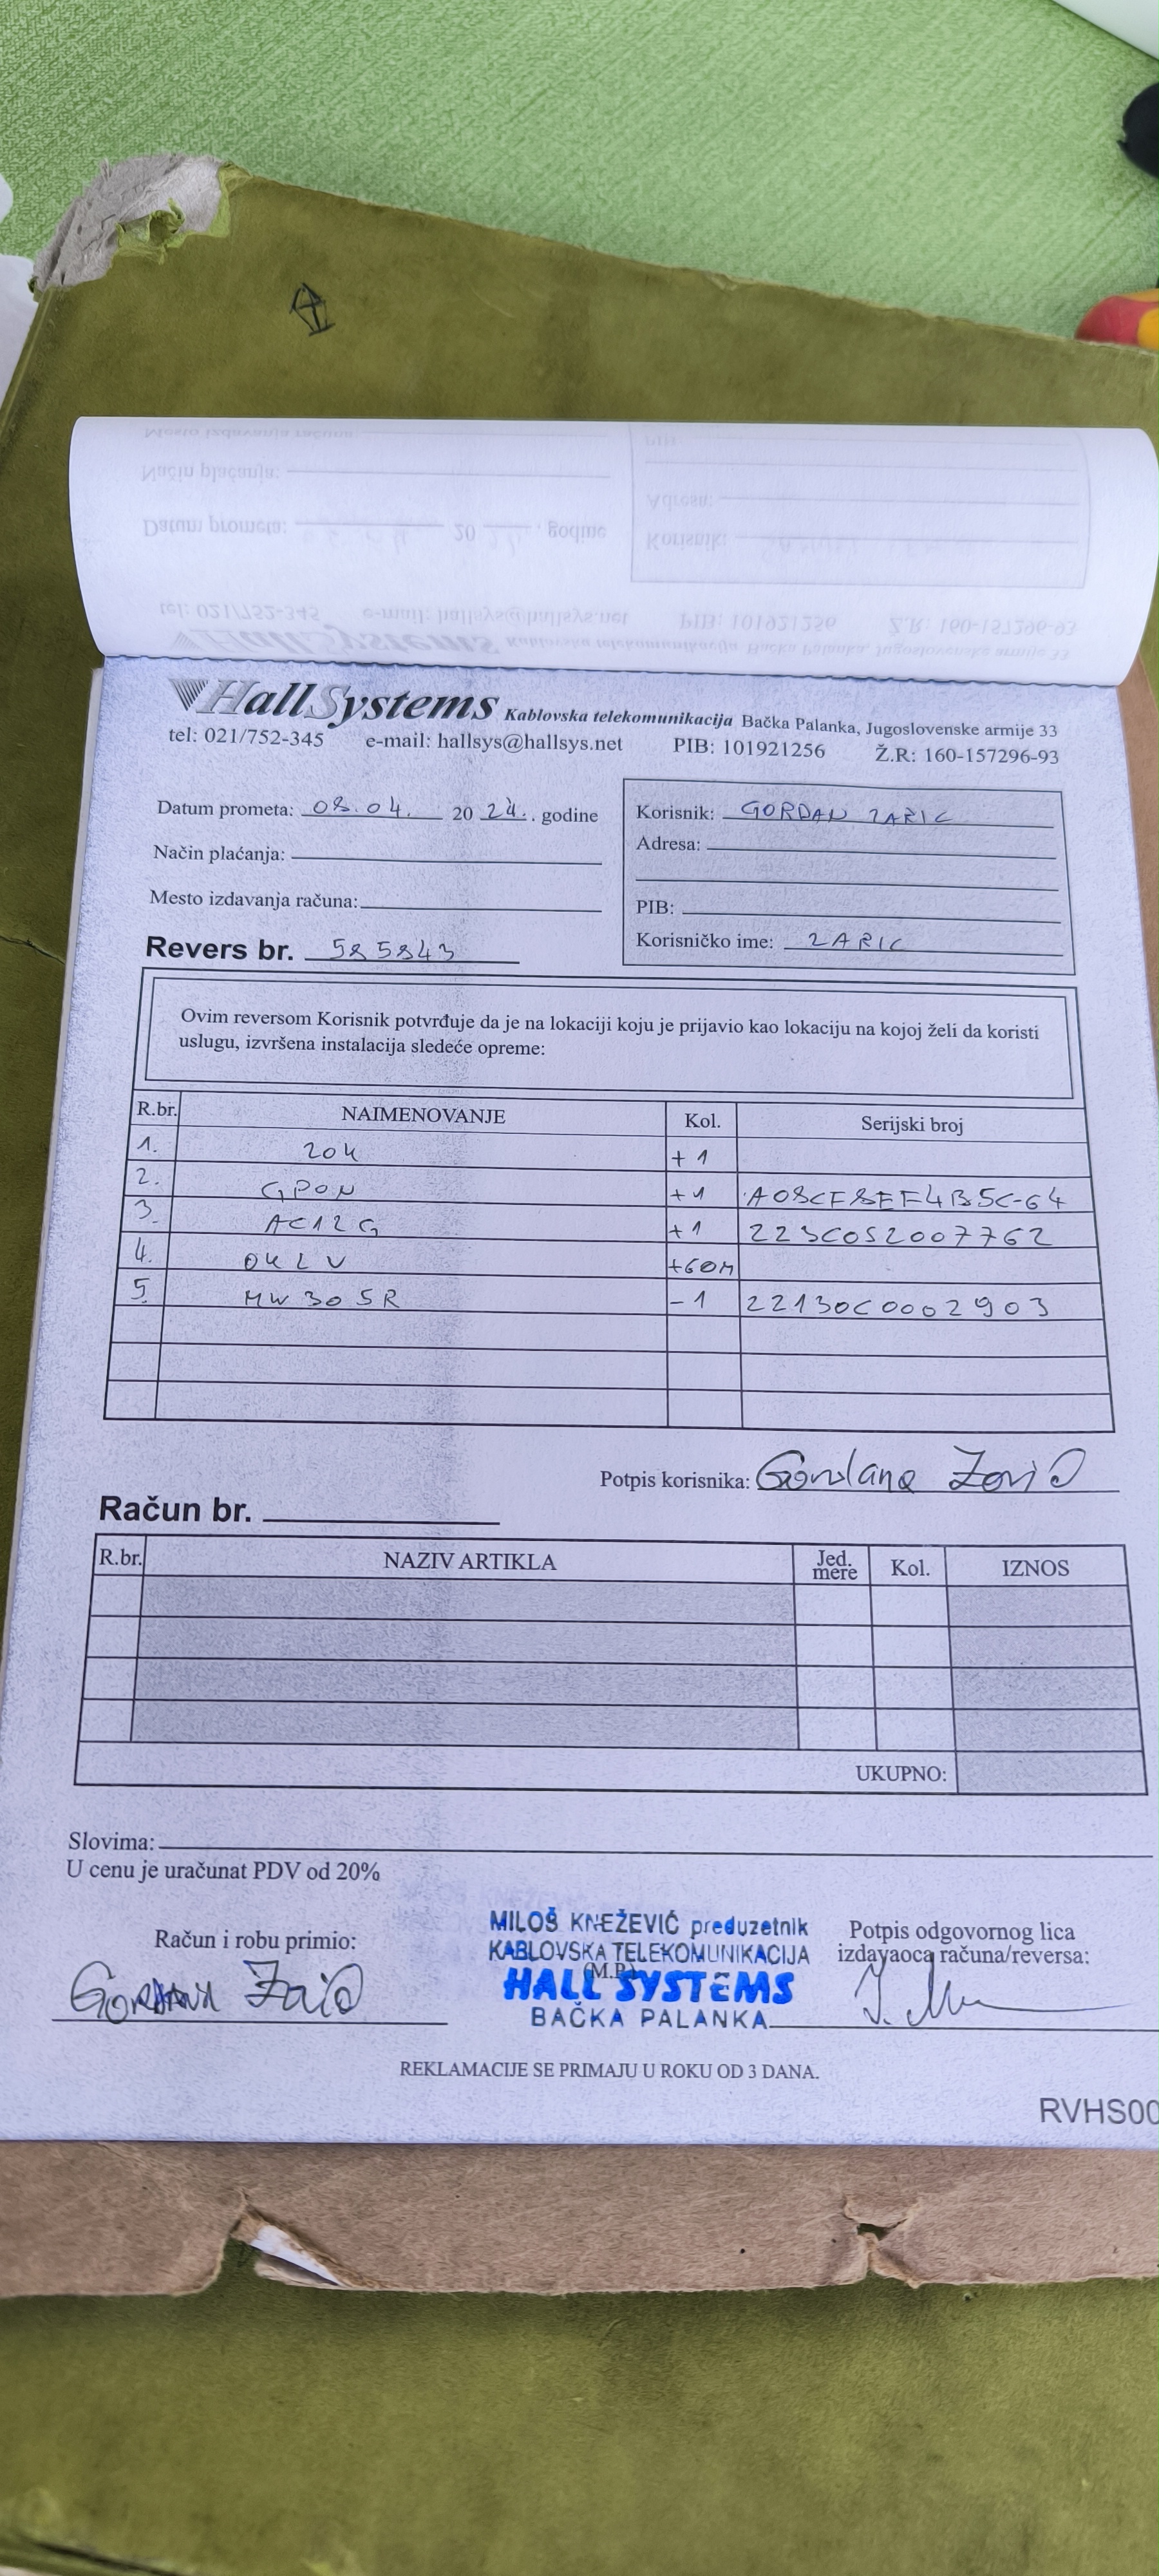 HallSystems Kablovska telekomunikacija Bačka Palanka, Jugoslovenske armije 33
tel: 021/752-345 e-mail: hallsys@hallsys.net PIB: 101921256 Ž.R: 160-157296-93
Datum prometa: 08.04. 20 24. . godine
Način plaćanja:
Mesto izdavanja računa:
Revers br. 585843
Korisnik: GORDAN ZARIC
Adresa:
PIB:
Korisničko ime: ZARIC
Ovim reversom Korisnik potvrđuje da je na lokaciji koju je prijavio kao lokaciju na kojoj želi da koristi
uslugu, izvršena instalacija sledeće opreme:
R.br. NAIMENOVANJE Kol. Serijski broj
1. ZOK +1
2. GPON +1 A08CF8EF4B5C-64
3. AC12G +1 223C052007762
4. OKLV +60M
5. MW305R -1 22130C0002903
Potpis korisnika: Gordana Zarić
Račun br.
R.br. NAZIV ARTIKLA Jed. mere Kol. IZNOS
UKUPNO:
Slovima:
U cenu je uračunat PDV od 20%
Račun i robu primio:
MILOŠ KNEŽEVIĆ preduzetnik
KABLOVSKA TELEKOMUNIKACIJA
(M.P.)
HALL SYSTEMS
BAČKA PALANKA
Potpis odgovornog lica
izdavaoca računa/reversa:
REKLAMACIJE SE PRIMAJU U ROKU OD 3 DANA.
RVHS00